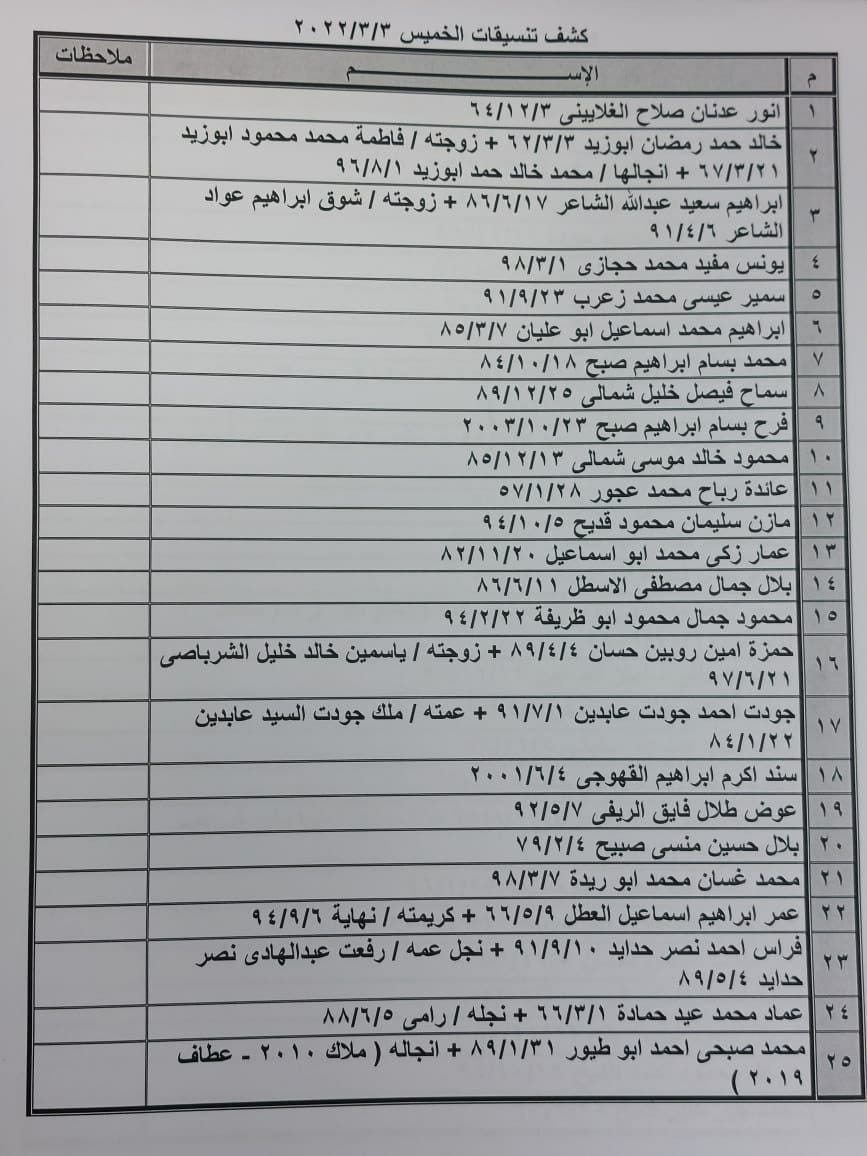 كشف تنسيقات الخميس ٢٠٢٢/٣/٣
م الإســـــــــــم ملاحظات
١ انور عدنان صلاح الغلايينى ٦٤/١٢/٣
٢ خالد حمد رمضان ابوزيد ٦٢/٣/٣ + زوجته / فاطمة محمد محمود ابوزيد
٦٧/٣/٢١ + انجالها / محمد خالد حمد ابوزيد ٩٦/٨/١
٣ ابراهيم سعيد عبدالله الشاعر ٨٦/٦/١٧ + زوجته / شوق ابراهيم عواد
الشاعر ٩١/٤/٦
٤ يونس مفيد محمد حجازى ٩٨/٣/١
٥ سمير عيسى محمد زعرب ٩١/٩/٢٣
٦ ابراهيم محمد اسماعيل ابو عليان ٨٥/٣/٧
٧ محمد بسام ابراهيم صبح ٨٤/١٠/١٨
٨ سماح فيصل خليل شمالى ٨٩/١٢/٢٥
٩ فرح بسام ابراهيم صبح ٢٠٠٣/١٠/٢٣
١٠ محمود خالد موسى شمالى ٨٥/١٢/١٣
١١ عائدة رباح محمد عجور ٥٧/١/٢٨
١٢ مازن سليمان محمود قديح ٩٤/١٠/٥
١٣ عمار زكى محمد ابو اسماعيل ٨٢/١١/٢٠
١٤ بلال جمال مصطفى الاسطل ٨٦/٦/١١
١٥ محمود جمال محمود ابو ظريفة ٩٤/٢/٢٢
١٦ حمزة امين روبين حسان ٨٩/٤/٤ + زوجته / ياسمين خالد خليل الشرباصى
٩٧/٦/٢١
١٧ جودت احمد جودت عابدين ٩١/٧/١ + عمته / ملك جودت السيد عابدين
٨٤/١/٢٢
١٨ سند اكرم ابراهيم القهوجى ٢٠٠١/٦/٤
١٩ عوض طلال فايق الريفى ٩٢/٥/٧
٢٠ بلال حسين منسى صبيح ٧٩/٢/٤
٢١ محمد غسان محمد ابو ريدة ٩٨/٣/٧
٢٢ عمر ابراهيم اسماعيل العطل ٦٦/٥/٩ + كريمته / نهاية ٩٤/٩/٦
٢٣ فراس احمد نصر حدايد ٩١/٩/١٠ + نجل عمه / رفعت عبدالهادى نصر
حدايد ٨٩/٥/٤
٢٤ عماد محمد عيد حمادة ٦٦/٣/١ + نجله / رامى ٨٨/٦/٥
٢٥ محمد صبحى احمد ابو طيور ٨٩/١/٣١ + انجاله ( ملاك ٢٠١٠ - عطاف
٢٠١٩ )